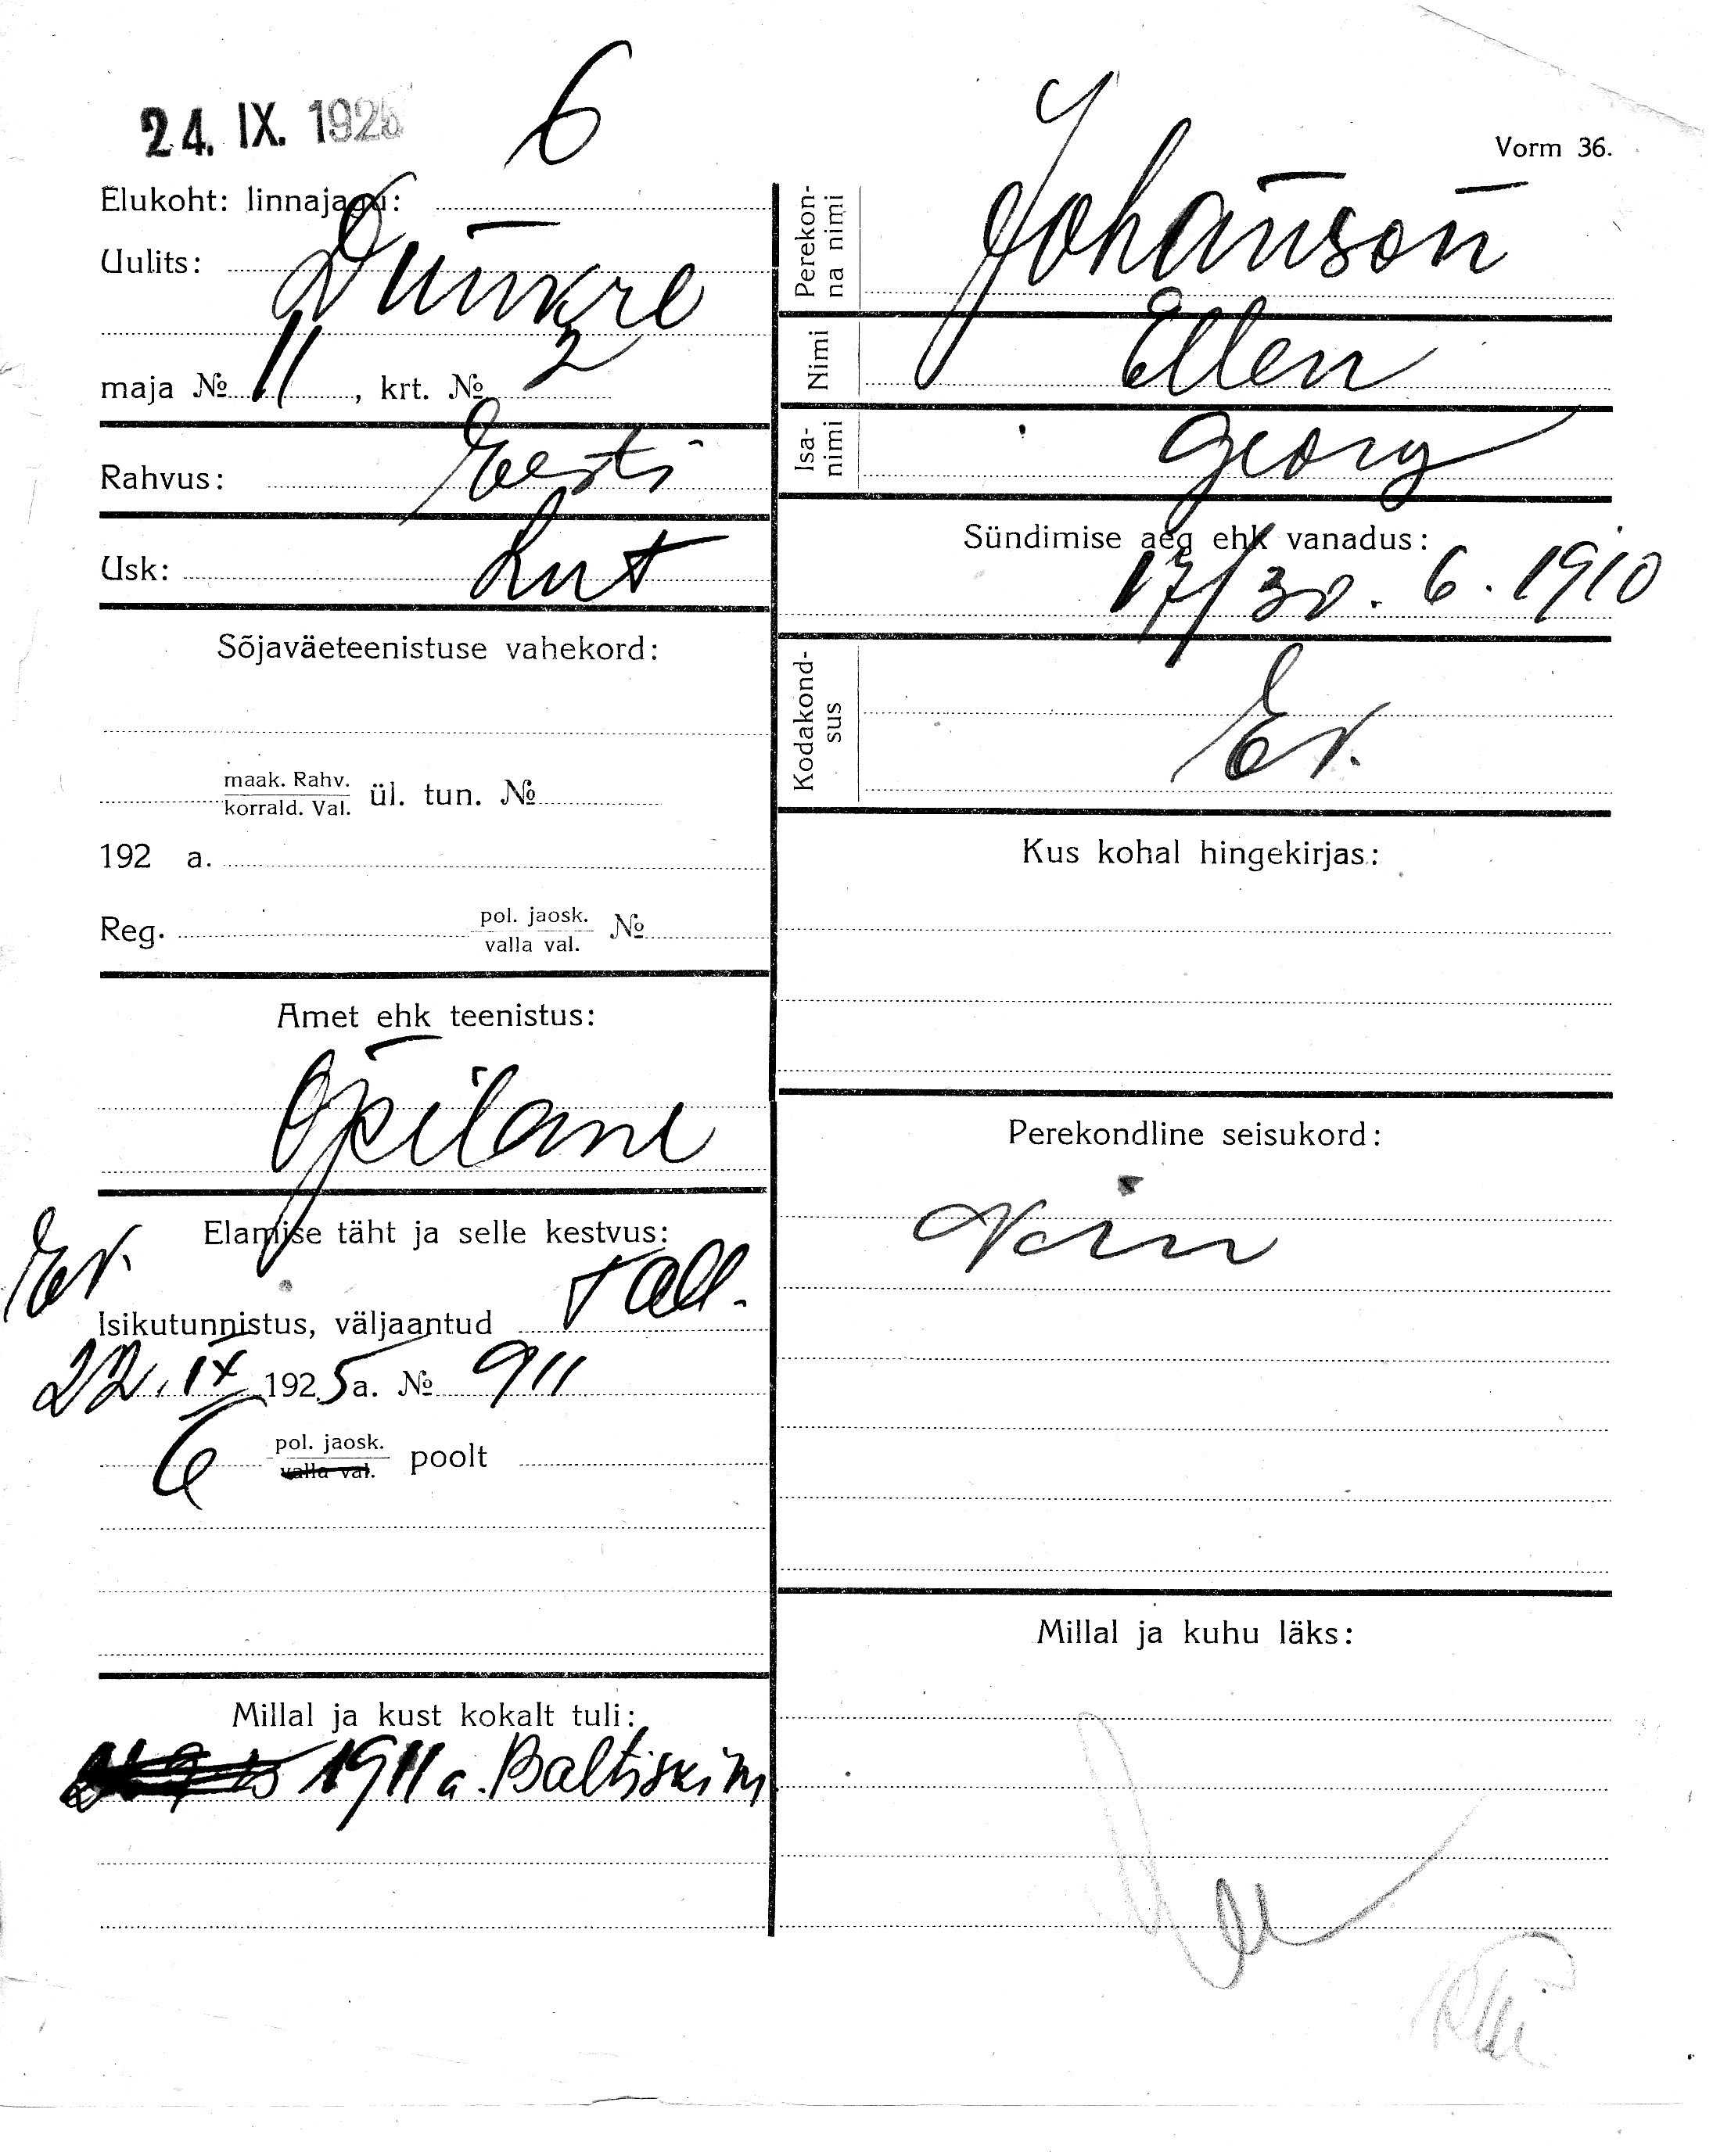 24. IX. 1925
6
Elukoht: linnajagu:
Uulits: Dünkre
maja № 11, krt. № 2
Rahvus: Eesti
Usk: Lut
Sõjaväeteenistuse vahekord:
maak. Rahv.
korrald. Val. ül. tun. №
192 a.
Reg. pol. jaosk. №
valla val.
Amet ehk teenistus:
Õpilane
Elamise täht ja selle kestvus:
Ev.
Isikutunnistus, väljaantud Tall.
22. IX 1925 a. № 911
6 pol. jaosk. poolt
valla val.
Millal ja kust kokalt tuli:
1911 a. Baltiskim
Vorm 36.
Perekon-
na nimi
Johanson
Nimi Ellen
Isa-
nimi
Georg
Sündimise aeg ehk vanadus:
17/30. 6. 1910
Kodakond-
sus
Ev.
Kus kohal hingekirjas:
Perekondline seisukord:
Millal ja kuhu läks: